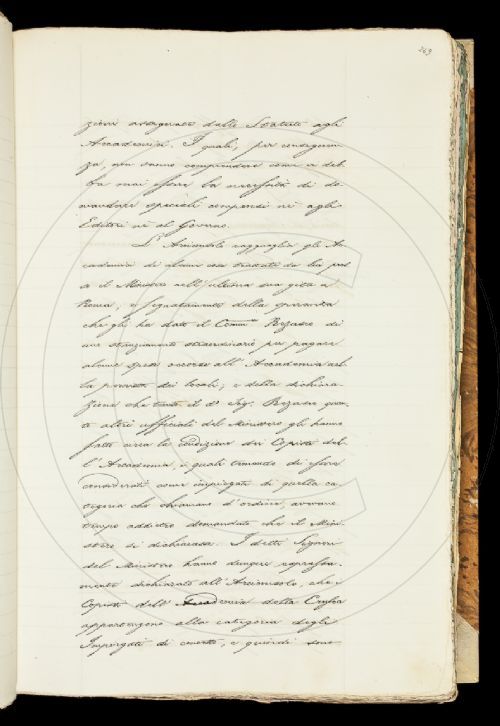 269
zioni assegnate dallo Statuto agli
Accademici. I quali, per conseguen-
za, non sanno comprendere come vi deb-
ba mai essere la necessità di do-
mandare speciali compensi nè agli
Editori nè al Governo.
L'Arciconsolo ragguaglia gli Ac-
cademici di alcune cose trattate da lui pres-
so il Ministero nell'ultima sua gita a
Roma, e segnatamente della speranza
che gli ha dato il Comm. Rezasco di
uno stanziamento straordinario per pagare
alcune spese occorse all'Accademia nel-
la provvista dei locali, e della dichiara-
zione che tanto il d.º Sig. Rezasco quan-
to altri ufficiali del Ministero gli hanno
fatto circa la condizione dei Copisti del-
l'Accademia, i quali temendo di essere
considerati come impiegati di quella ca-
tegoria che chiamano d'ordine, avevano
tempo addietro domandato che il Mini-
stero si dichiarasse. I detti Signori
del Ministero hanno dunque espressa-
mente dichiarato all'Arciconsolo, che i
Copisti dell'Accademia della Crusca
appartengono alla categoria degli
Impiegati di concetto, e quindi sono